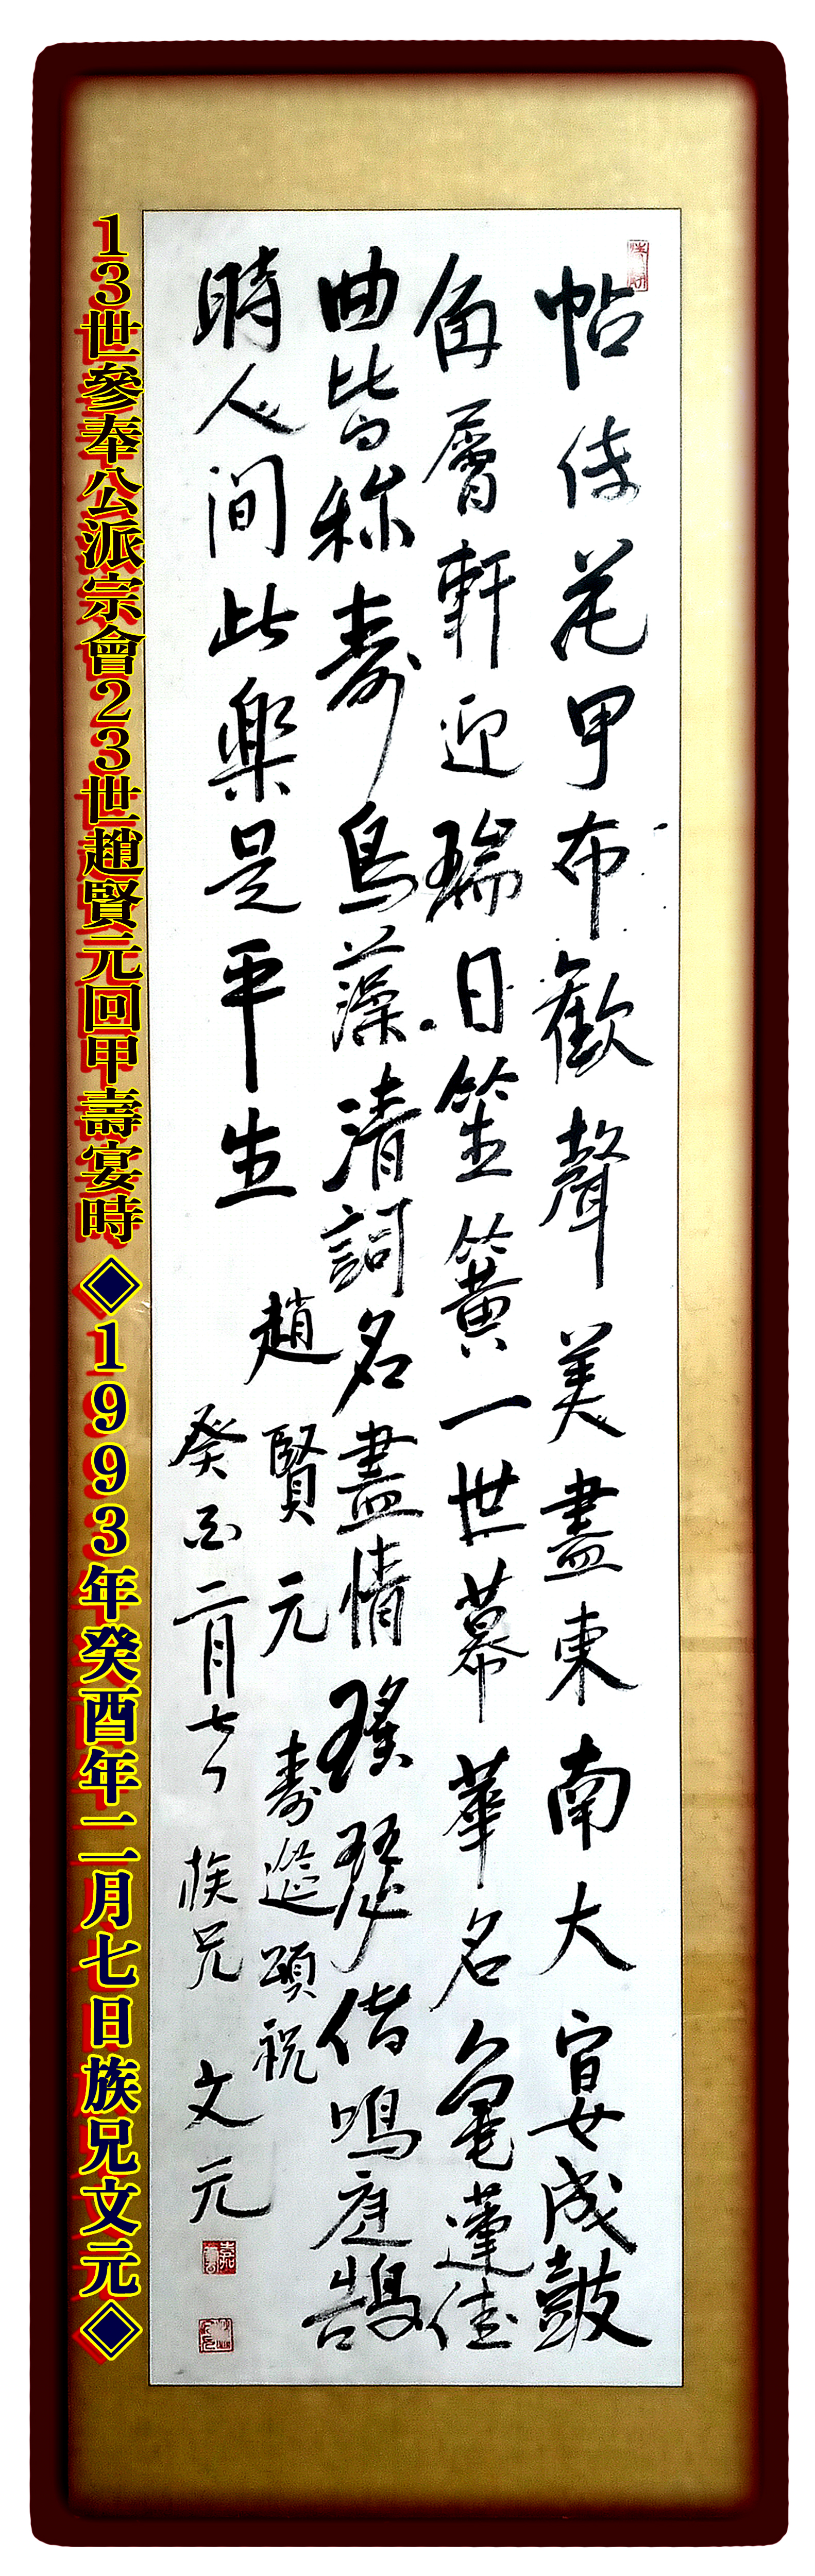 帖傳花甲布歡聲美盡東南大宴成鼓
角層軒迎瑞日笙簧一世幕華名龜蓮佳
曲皆称壽鳥藻清詞名盡情瑤瑟偕鳴庭鵠
時人间此樂是平生
趙賢元 壽筵頌祝
癸酉二月七日 族兄 文元
13世參奉公派宗會23世趙賢元回甲壽宴時◆1993年癸酉年二月七日族兄文元◆